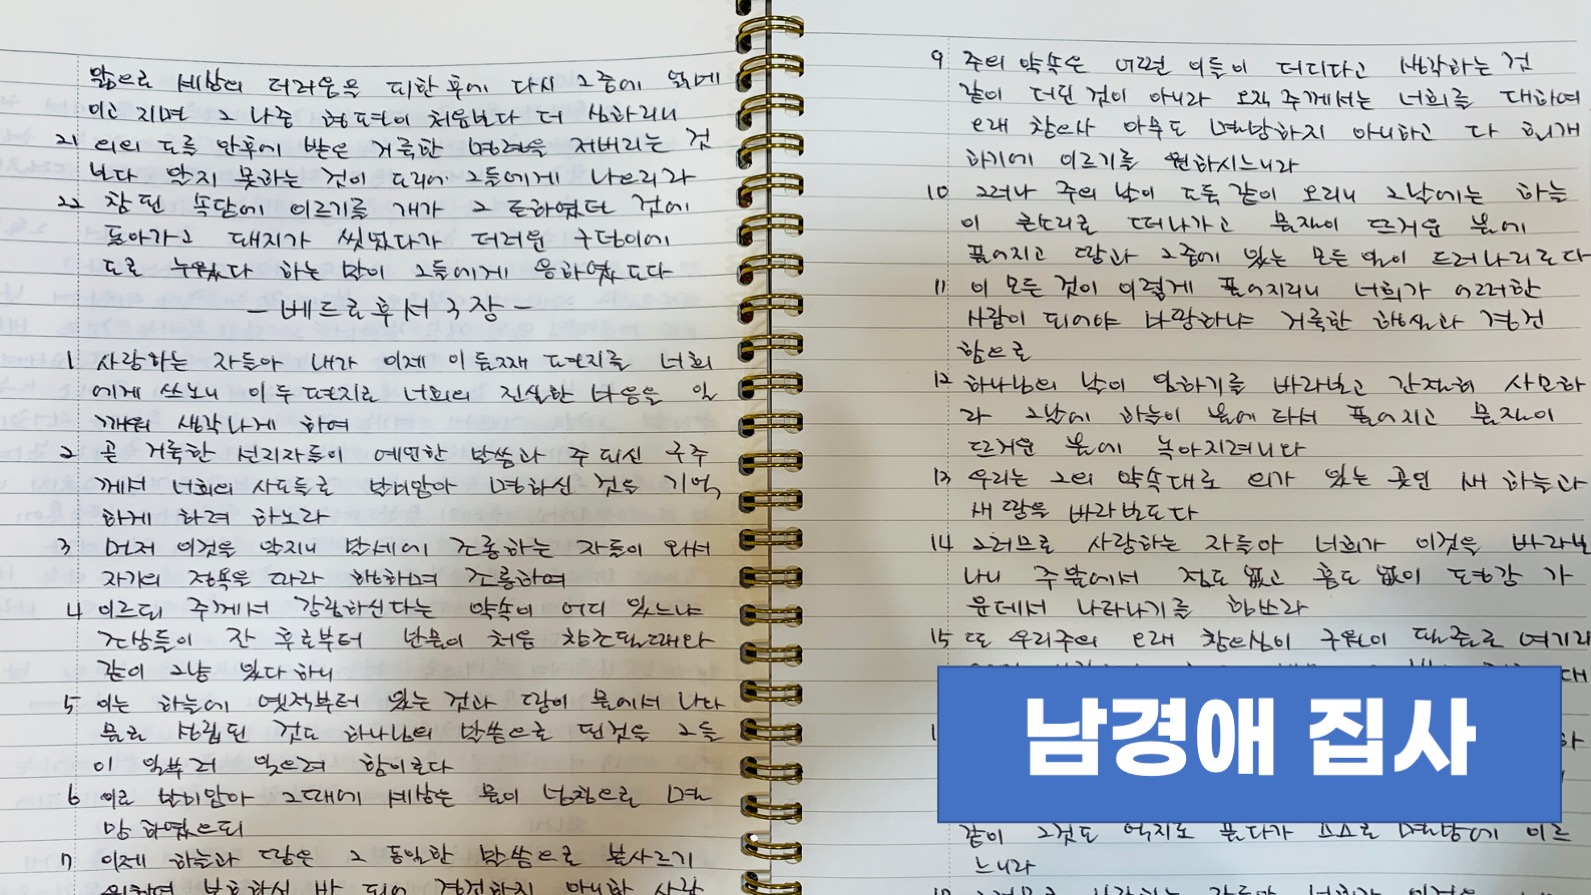 앎으로 세상의 더러움을 피한 후에 다시 그 중에 얽매
이고 지면 그 나중 형편이 처음보다 더 심하리니
21 의의 도를 안후에 받은 거룩한 명령을 저버리는 것
보다 알지 못하는 것이 도리어 그들에게 나으리라
22 참된 속담에 이르기를 개가 그 토하였던 것에
돌아가고 돼지가 씻었다가 더러운 구덩이에
도로 누웠다 하는 말이 그들에게 응하였도다
- 베드로후서 3장 -
1 사랑하는 자들아 내가 이제 이 둘째 편지를 너희
에게 쓰노니 이 두 편지로 너희의 진실한 마음을 일
깨워 생각나게 하여
2 곧 거룩한 선지자들이 예언한 말씀과 주 되신 구주
께서 너희의 사도들로 말미암아 명하신 것을 기억
하게 하려 하노라
3 먼저 이것을 알지니 말세에 조롱하는 자들이 와서
자기의 정욕을 따라 행하며 조롱하여
4 이르되 주께서 강림하신다는 약속이 어디 있느냐
조상들이 잔 후로부터 만물이 처음 창조될때와
같이 그냥 있다 하니
5 이는 하늘이 옛적부터 있는 것과 땅이 물에서 나와
물로 성립된 것도 하나님의 말씀으로 된것을 그들
이 일부러 잊으려 함이로다
6 이로 말미암아 그때에 세상은 물이 넘침으로 멸
망 하였으되
7 이제 하늘과 땅은 그 동일한 말씀으로 불사르기
위하여 보호하신 바 되어 경건하지 아니한 사람
9 주의 약속은 어떤 이들이 더디다고 생각하는 것
같이 더딘 것이 아니라 오직 주께서는 너희를 대하여
오래 참으사 아무도 멸망하지 아니하고 다 회개
하기에 이르기를 원하시느니라
10 그러나 주의 날이 도둑 같이 오리니 그날에는 하늘
이 큰소리로 떠나가고 물질이 뜨거운 불에
풀어지고 땅과 그 중에 있는 모든 일이 드러나리로다
11 이 모든 것이 이렇게 풀어지리니 너희가 어떠한
사람이 되어야 마땅하냐 거룩한 행실과 경건
함으로
12 하나님의 날이 임하기를 바라보고 간절히 사모하
라 그날에 하늘이 불에 타서 풀어지고 물질이
뜨거운 불에 녹아지려니와
13 우리는 그의 약속대로 의가 있는 곳인 새 하늘과
새 땅을 바라보도다
14 그러므로 사랑하는 자들아 너희가 이것을 바라보
나니 주 앞에서 점도 없고 흠도 없이 평강 가
운데서 나타나기를 힘쓰라
15 또 우리주의 오래 참으심이 구원이 될줄로 여기라
남경애 집사
같이 그것도 억지로 풀다가 스스로 멸망에 이르
느니라